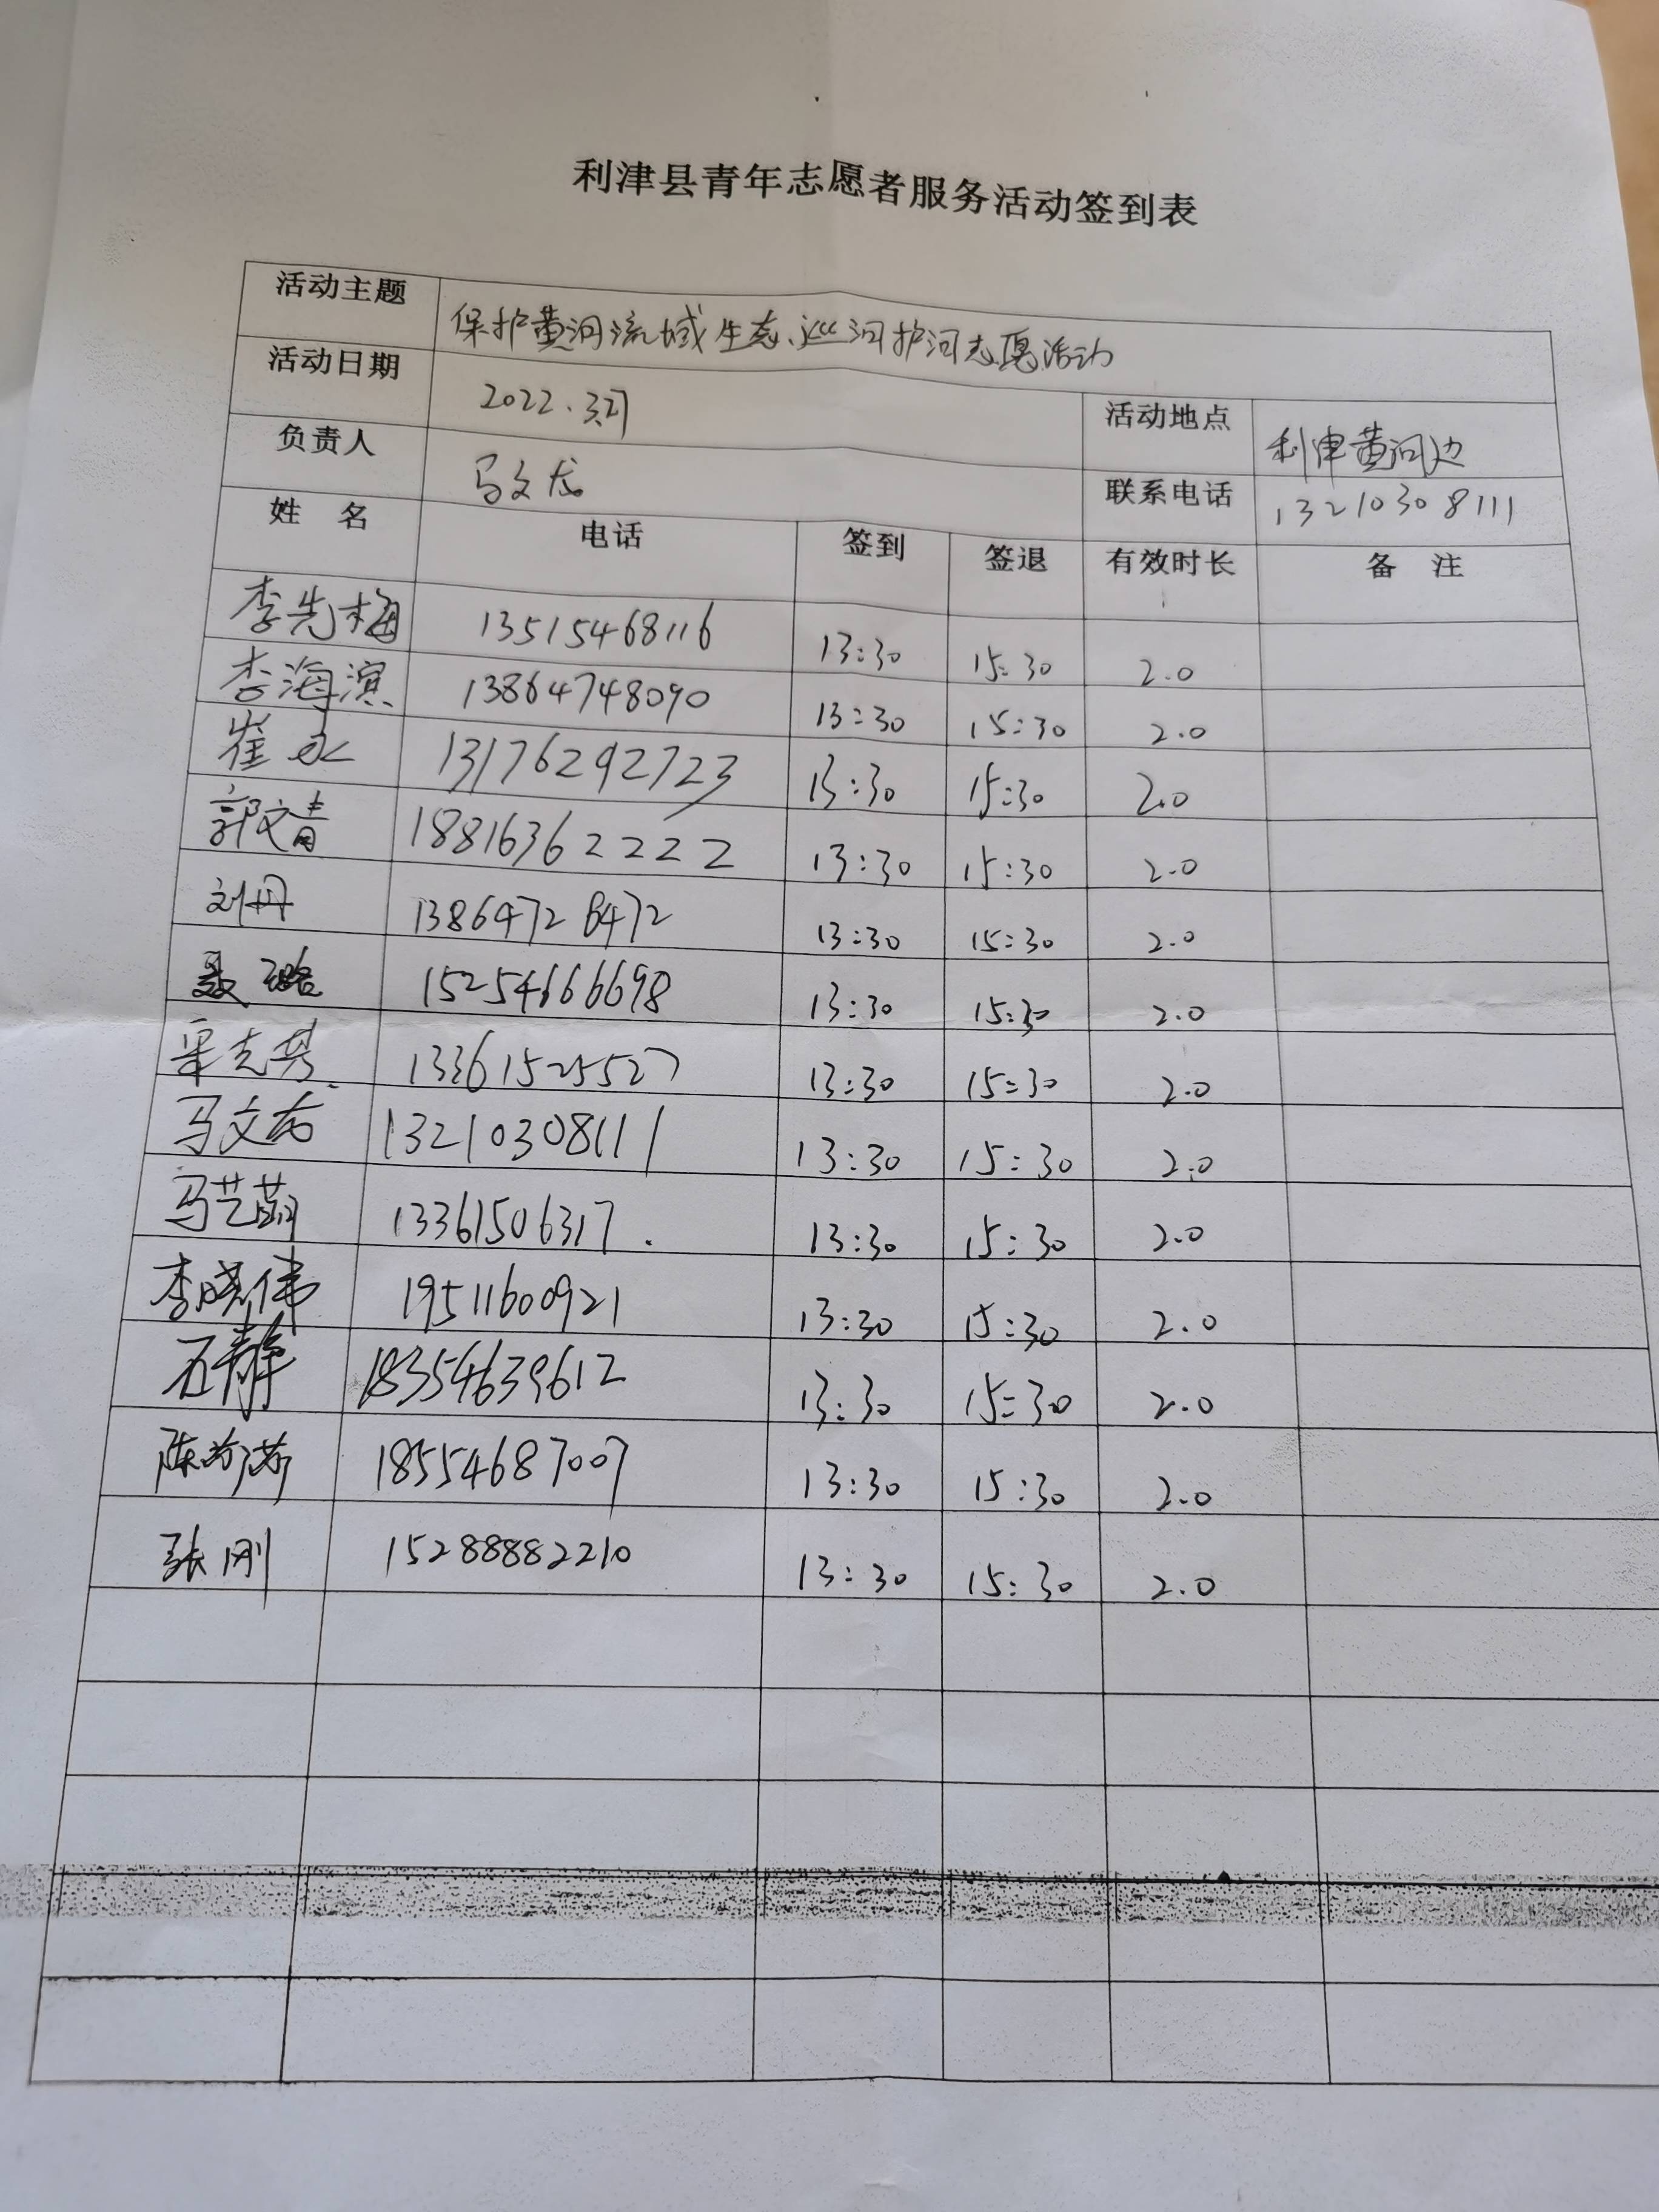 利津县青年志愿者服务活动签到表
活动主题 保护黄河流域生态、巡河护河志愿活动
活动日期 2022. 活动地点 利津黄河边
负责人 马文龙 联系电话 13210308111
姓 名 电话 签到 签退 有效时长 备 注
李先梅 13515468116 13:30 15:30 2.0
李海滨 13864748090 13:30 15:30 2.0
崔永 13176292723 13:30 15:30 2.0
郭文青 18816362222 13:30 15:30 2.0
刘丹 13864728472 13:30 15:30 2.0
聂璐 15254666698 13:30 15:30 2.0
13361525527 13:30 15:30 2.0
马文龙 13210308111 13:30 15:30 2.0
马艺萌 13361506317. 13:30 15:30 2.0
李晓伟 19511600921 13:30 15:30 2.0
石静 18354639612 13:30 15:30 2.0
陈 18554687007 13:30 15:30 2.0
张刚 15288882210 13:30 15:30 2.0